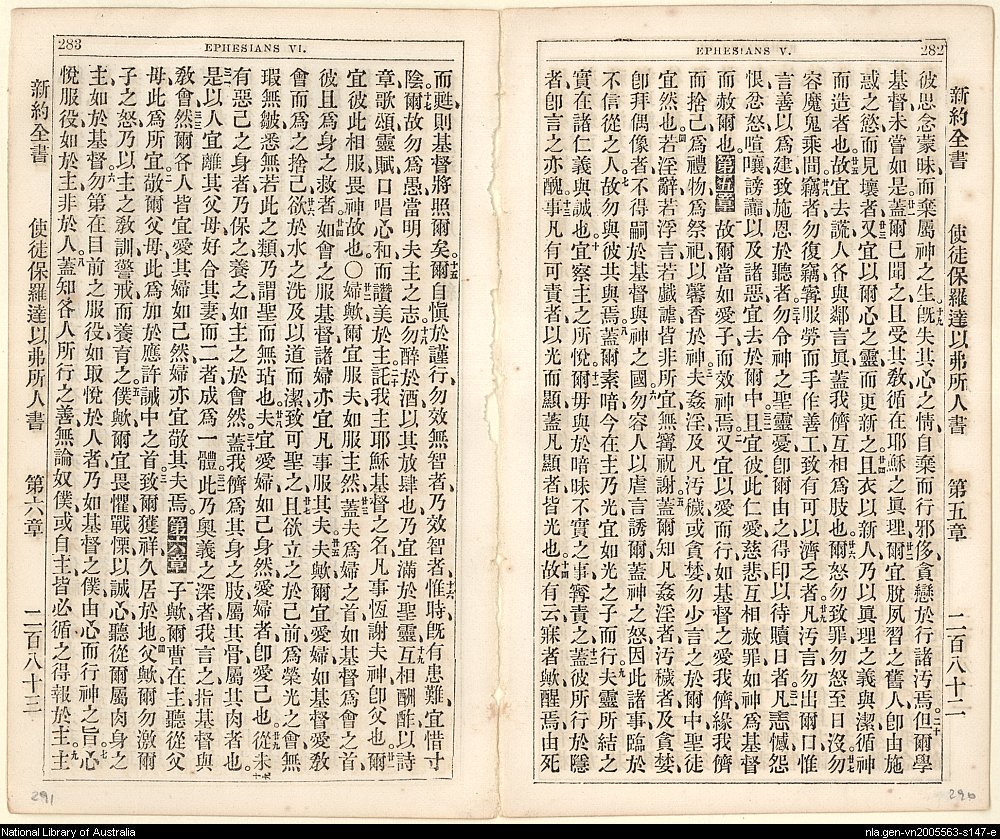 282
EPHESIANS V.
新約全書 使徒保羅達以弗所人書 第五章 二百八十二
彼思念蒙昧、而棄屬神之生。十九既失其心之情、自棄而行邪侈、貪戀於行諸汚焉。二十但爾學
基督、未嘗如是。廿一蓋爾已聞之、且受其敎、循在耶穌之眞理。廿二爾宜脫夙習之舊人、卽由施
惑之慾而見壞者。廿三又宜以爾心之靈而更新之。廿四且衣以新人、乃以眞理之義與潔循神
而造者也。廿五故宜去謊、人各與鄰言眞、蓋我儕互相爲肢也。廿六爾怒勿致罪、勿怒至日沒。廿七勿
容魔鬼乘間。廿八竊者勿復竊、寧服勞而手作善工、致有可以濟乏者。廿九凡汚言、勿出爾口、惟
言善以爲建、致施恩於聽者。三十勿令神之聖靈憂、卽爾由之得印以待贖日者。卅一凡恚憾怨
恨忿怒喧嚷謗讟、以及諸惡、宜去於爾中。卅二且宜彼此仁愛慈悲、互相赦罪、如神爲基督
而赦爾也。第五章 故爾當如愛子而效神焉。二又宜以愛而行、如基督之愛我儕、緣我儕
而捨己、爲禮物、爲祭祀、以馨香於神。三夫姦淫及凡汚穢、或貪婪、勿少言之於爾中、聖徒
宜然也。四若淫辭、若浮言、若戲謔、皆非所宜、無寧祝謝。五蓋爾知凡姦淫者、汚穢者、及貪婪
卽拜偶像者、不得嗣於基督與神之國。六勿容人以虛言誘爾、蓋神之怒因此諸事臨於
不信從之人。七故勿與彼共與焉。八蓋爾素暗、今在主乃光、宜如光之子而行。九夫靈所結之
實、在諸仁義與誠也。十宜察主之所悅。十一爾毋與於暗昧不實之事、寧責之。十二蓋彼所行於隱
者、卽言之亦醜。十三事凡有可責者、以光而顯、蓋凡顯者皆光也。十四故有云、寐者歟、醒焉、由死
290
283
EPHESIANS VI.
而甦、則基督將照爾矣。十五爾自愼於謹行、勿效無智者、乃效智者。十六惟時既有患難、宜惜寸
陰。十七爾故勿爲愚、當明夫主之志。十八勿醉於酒、以其放肆也、乃宜滿於聖靈。十九互相酬酢、以詩
章歌頌靈賦、口唱心和而讚美於主。二十託我主耶穌基督之名、凡事恆謝夫神卽父也。廿一爾
宜彼此相服、畏神故也。○廿二婦歟、爾宜服夫、如服主然。廿三蓋夫爲婦之首、如基督爲會之首、
彼且爲身之救者。廿四如會之服基督、諸婦亦宜凡事服其夫。廿五夫歟、爾宜愛婦、如基督愛敎
會而爲之捨己。廿六欲於水之洗及以道而潔、致可聖之。廿七且欲立之於己前、爲榮光之會、無
瑕無皺、悉無若此之類、乃謂聖而無玷也。廿八夫宜愛婦如己身然、愛婦者、卽愛己也。廿九從未
有惡己之身者、乃保之養之、如主之於會然。三十蓋我儕爲其身之肢、屬其骨、屬其肉者也。
卅一是以人宜離其父母、好合其妻、而二者成爲一體。卅二此乃奧義之深者、我言之指基督與
敎會。卅三然爾各人皆宜愛其婦如己、然婦亦宜敬其夫焉。第六章 子歟、爾曹在主聽從父
母、此爲所宜。二敬爾父母、此爲加於應許誡中之首。三致爾獲祥、久居於地。四父歟、爾勿激爾
子之怒、乃以主之敎訓警戒而養育之。五僕歟、爾宜畏懼戰慄、以誠心聽從爾屬肉身之
主、如於基督。六勿第在目前之服役、如取悅於人者、乃如基督之僕、由心而行神之旨。七心
悅服役、如於主、非於人。八蓋知各人所行之善、無論奴僕、或自主、皆必循之得報於主。九主
新約全書 使徒保羅達以弗所人書 第六章 二百八十三
291
National Library of Australia
nla.gen-vn2005563-s147-e